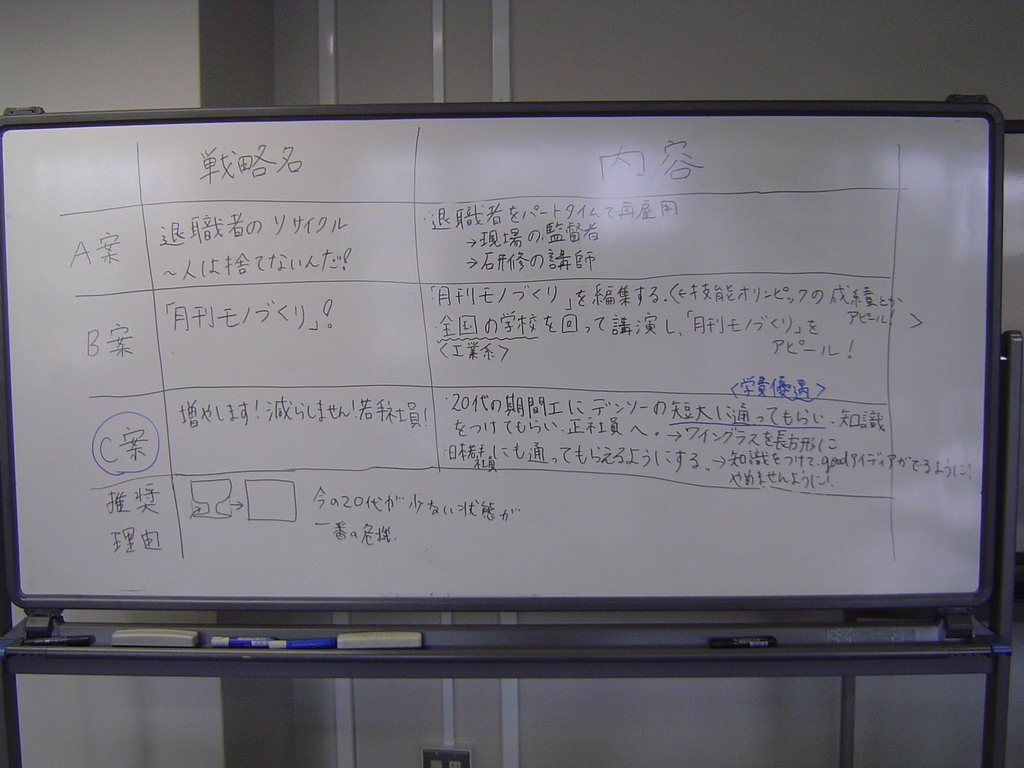 戦略名
内容
A案
退職者のリサイクル
~人は捨てないんだ!
・退職者をパートタイムで再雇用
→現場の監督者
→研修の講師
B案
「月刊モノづくり」!
・「月刊モノづくり」を編集する。〈←技能オリンピックの成績とか
アピール! 〉
・全国の学校を回って講演し、「月刊モノづくり」を
〈工業系〉
アピール!
〈学費優遇〉
C案
増やします!減らしません!若い社員!
・20代の期間工にデンソーの短大に通ってもらい、知識
をつけてもらい、正社員へ。→ワイングラスを長方形に
・日本若手社員にも通ってもらえるようにする。→知識をつけて、goodアイディアがでるように!
やめませんように!
推奨
理由
→
今の20代が少ない状態が
一番の危機。